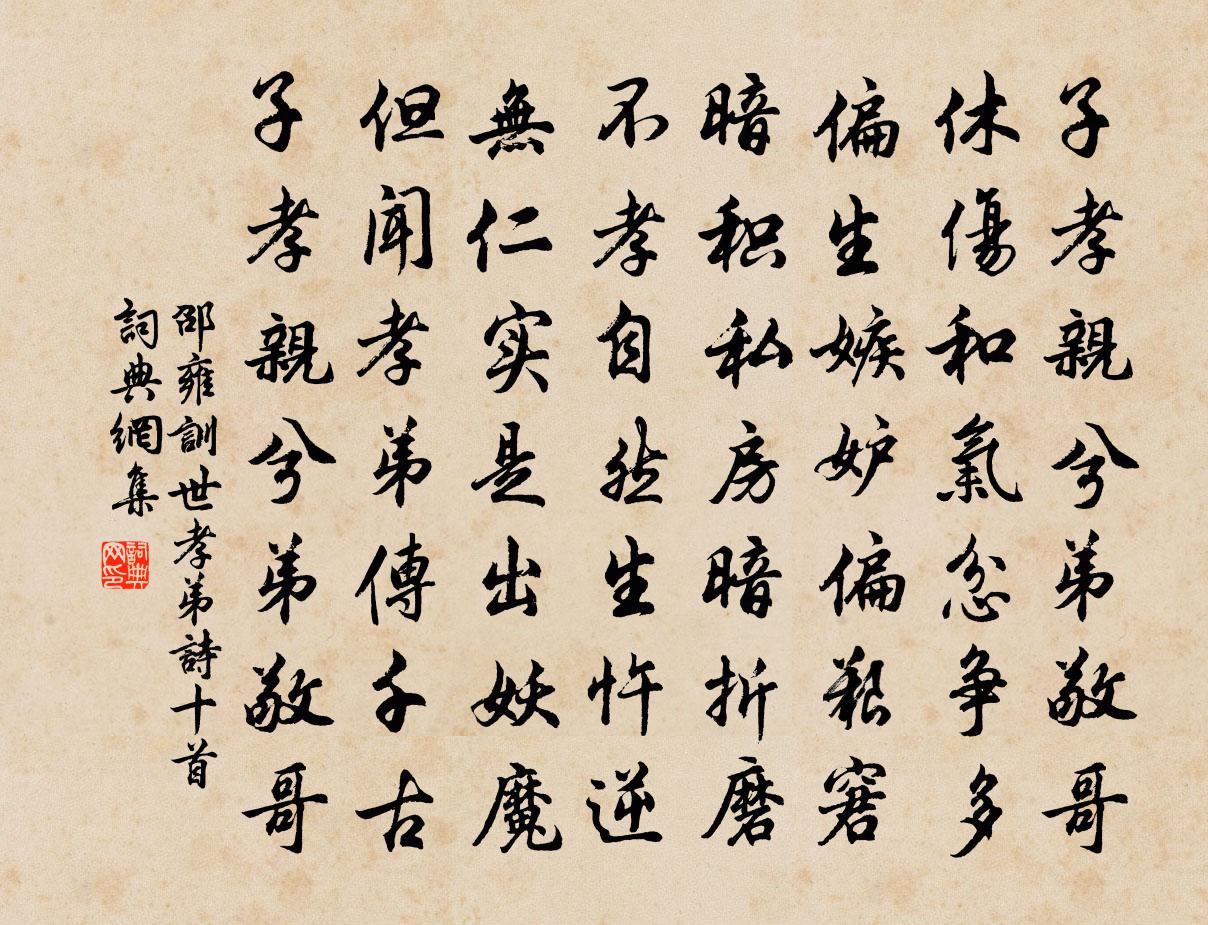 子孝親兮弟敬哥
休傷和氣忿争多
偏生嫉妒偏艱窘
暗积私房暗折磨
不孝自然生忤逆
無仁实是出妖魔
但聞孝弟傳千古
子孝親兮弟敬哥
邵雍訓世孝弟詩十首
詞典網集
詞典网印